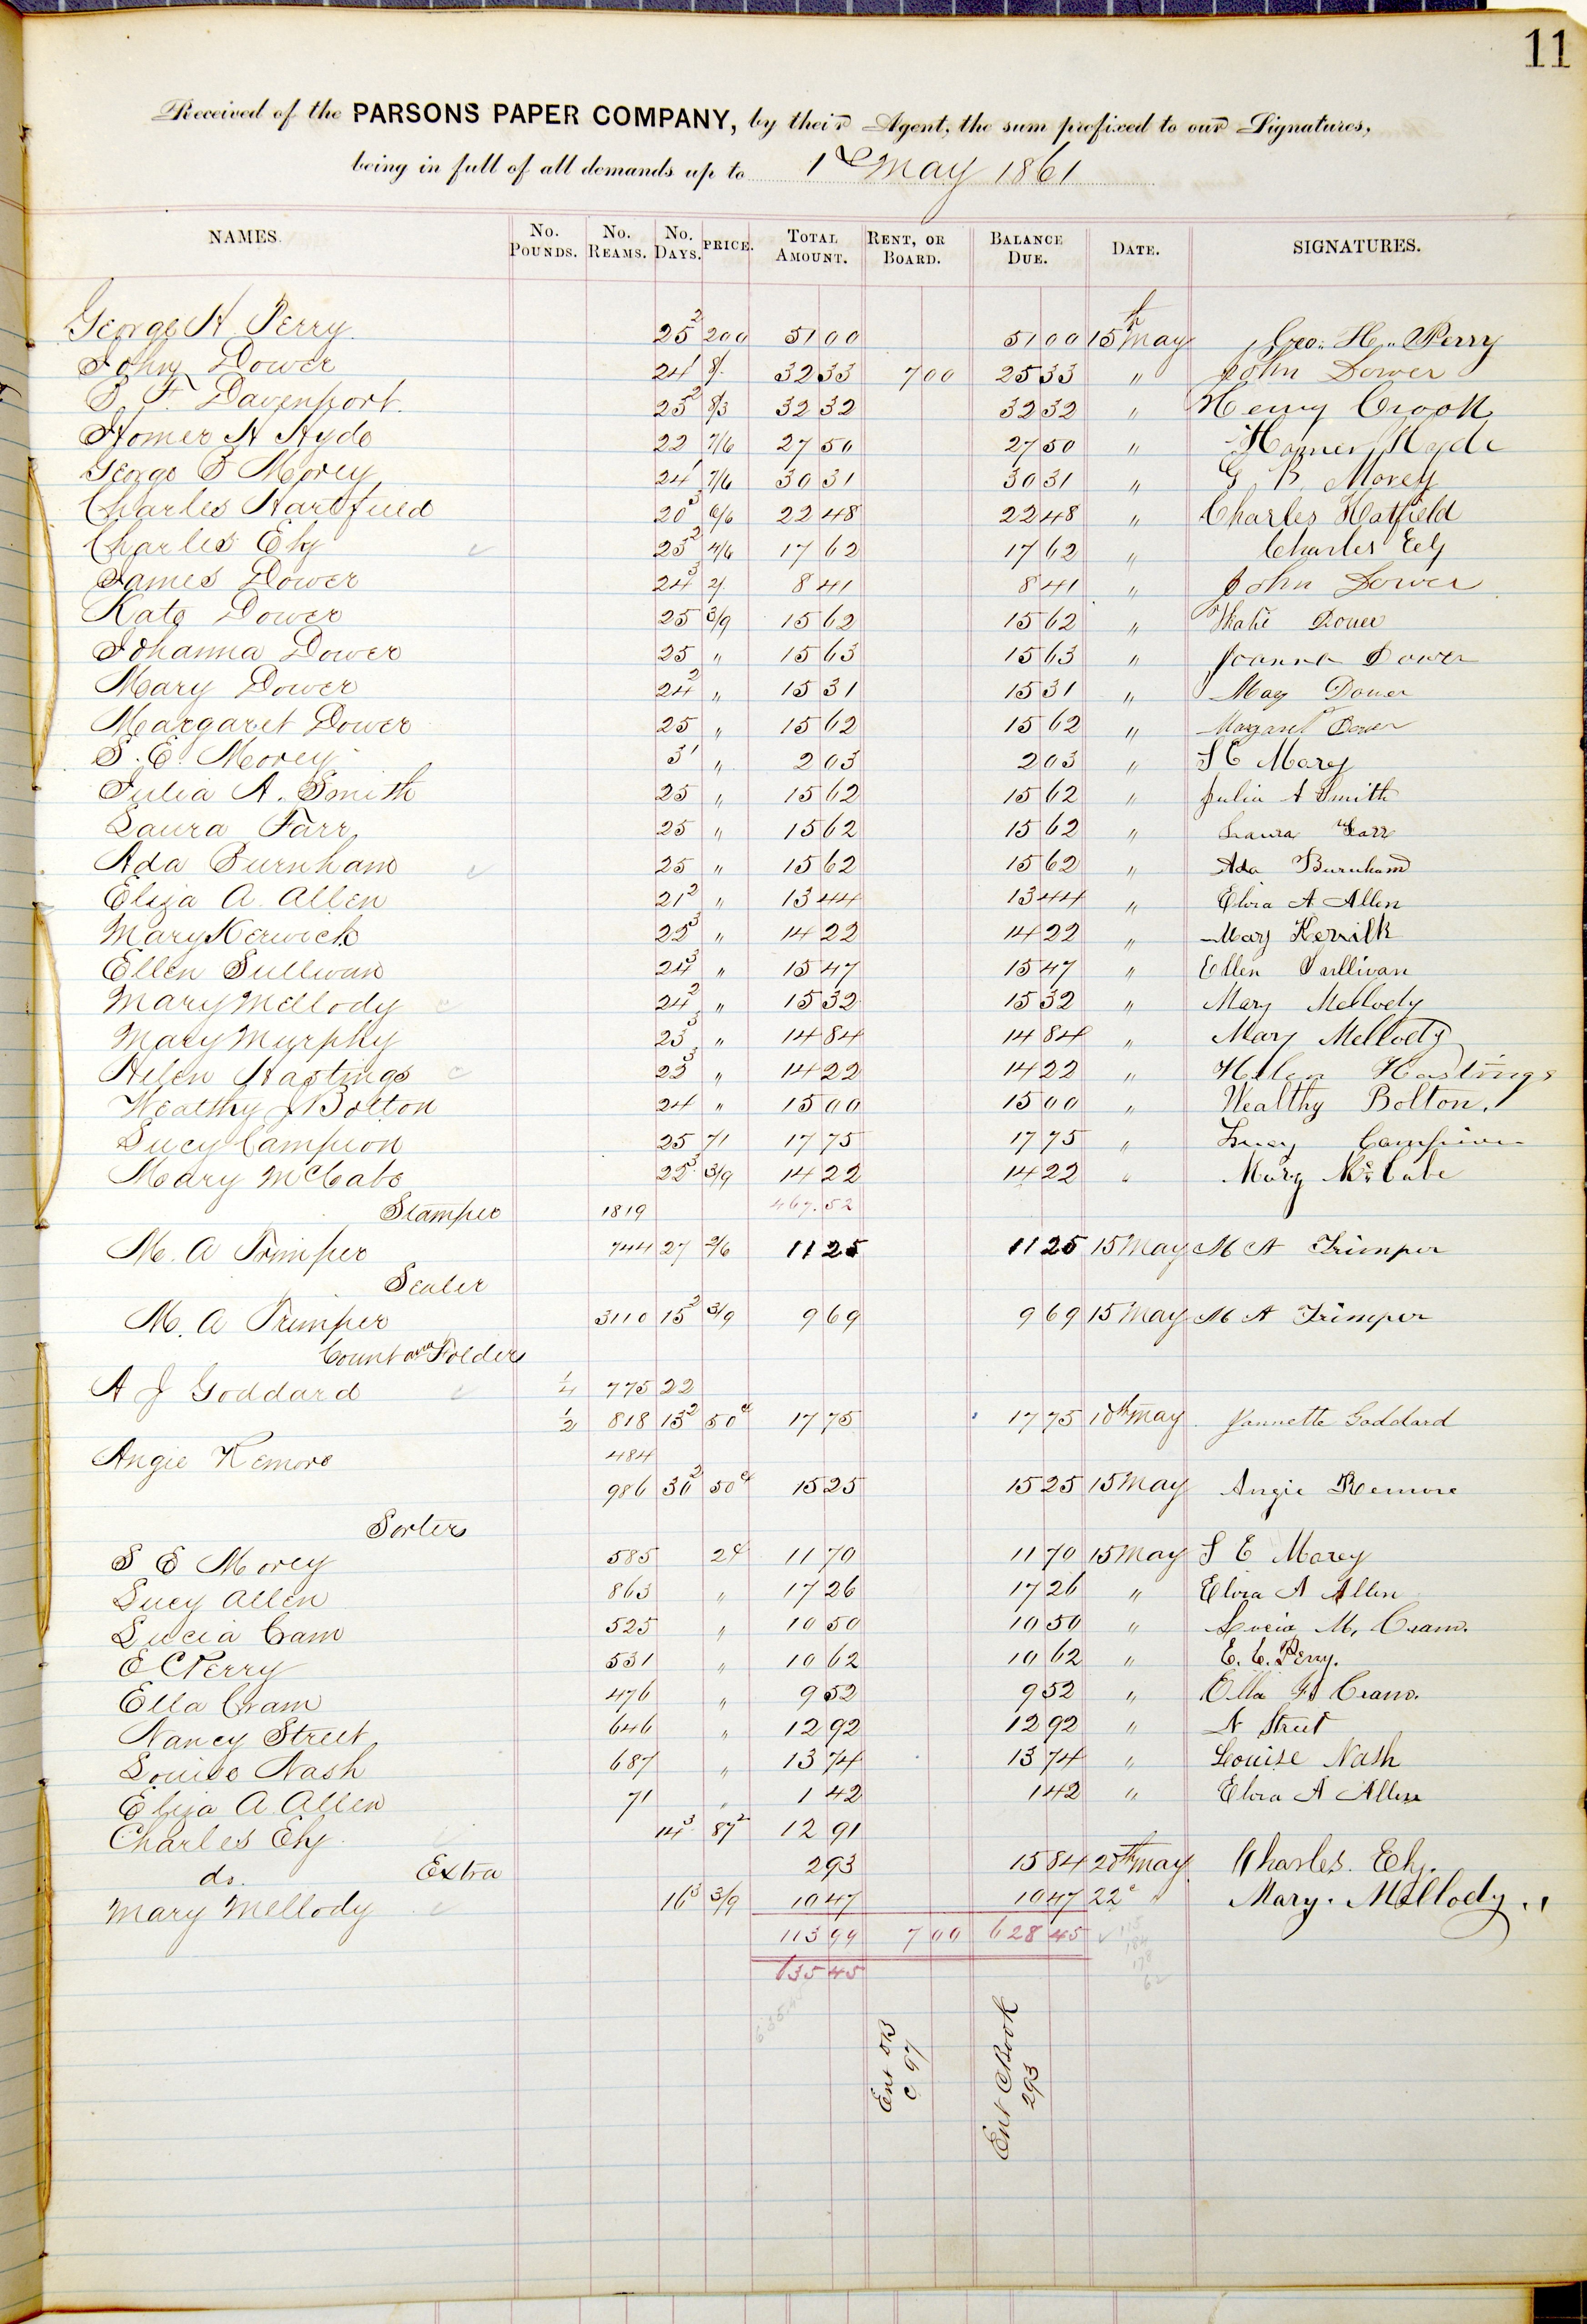 11
Received of the PARSONS PAPER COMPANY, by their Agent, the sum prefixed to our Signatures,
being in full of all demands up to 1st May 1861
NAMES. No. POUNDS. No. REAMS. No. DAYS. PRICE. TOTAL AMOUNT. RENT, OR BOARD. BALANCE DUE. DATE. SIGNATURES.
George H Perry 25 2 200 51 00 51 00 15th May Geo. H. Perry
John Dower 24 1 8/. 32 33 7 00 25 33 " John Dower
B. F. Davenport. 25 2 8/3 32 32 32 32 " Henry Crook
Homer H Hyde 22 7/6 27 50 27 50 " Homer Hyde
George B Morey 24 1 7/6 30 31 30 31 " G B Morey
Charles Hartfield 20 3 6/6 22 48 22 48 " Charles Hatfield
Charles Ely 23 2 4/6 17 62 17 62 " Charles Ely
James Dower 24 3 2/. 8 41 8 41 " John Dower
Kate Dower 25 3/9 15 62 15 62 " Katie Dower
Johanna Dower 25 " 15 63 15 63 " Joanna Dower
Mary Dower 24 2 " 15 31 15 31 " May Dower
Margaret Dower 25 " 15 62 15 62 " Margaret Dower
S. E. Morey 3 1 " 2 03 2 03 " S E Morey
Julia A. Smith 25 " 15 62 15 62 " Julia A Smith
Laura Farr 25 " 15 62 15 62 " Laura Farr
Ada Burnham 25 " 15 62 15 62 " Ada Burnham
Eliza A. Allen 21 2 " 13 44 13 44 " Elvira A Allen
Mary Kerwick 22 3 " 14 22 14 22 " Mary Kerrilk
Ellen Sullivan 24 3 " 15 47 15 47 " Ellen Sullivan
Mary Mellody 24 2 " 15 32 15 32 " Mary Mellody
Mary Murphy 23 3 " 14 84 14 84 " Mary Mellody
Helen Hastings 22 3 " 14 22 14 22 " Helen Hastings
Wealthy J Bolton 24 " 15 00 15 00 " Wealthy Bolton.
Lucy Campion 25 71 17 75 17 75 " Lucy Campion
Mary McCabe 22 3 3/9 14 22 14 22 " Mary McCabe
Stamper 1819 467.52
M. A Trimper 744 27 2/6 11 25 11 25 15 May M A Trimper
Sealer
M. A Trimper 3110 15 2 3/9 9 69 9 69 15 May M A Trimper
Count and Folders
A J Goddard 1/4 775 22
1/2 818 13 2 50c 17 75 17 75 18th May Jannette Goddard
Angie Kemore 484
986 30 2 50c 15 25 15 25 15 May Angie Remore
Sorters
S E Morey 585 2c 11 70 11 70 15 May S E Morey
Lucy Allen 863 " 17 26 17 26 " Elvira A Allen
Lucia Cram 525 " 10 50 10 50 " Lucia M. Cram.
E C Perry 531 " 10 62 10 62 " E. C. Perry.
Ella Cram 476 " 9 52 9 52 " Ella F. Cram.
Nancy Street 646 " 12 92 12 92 " N Street
Louise Nash 687 " 13 74 13 74 " Louise Nash
Eliza A. Allen 71 " 1 42 1 42 " Elvira A Allen
Charles Ely 14 3 87 2 12 91
do. Extra 2 93 15 84 20th May Charles. Ely.
Mary Mellody 16 3 3/9 10 47 10 47 22 " Mary. Mellody.
113 99 7 00 628 45
635 45
635.45
Ent DB
C 97
Ent CBook
293